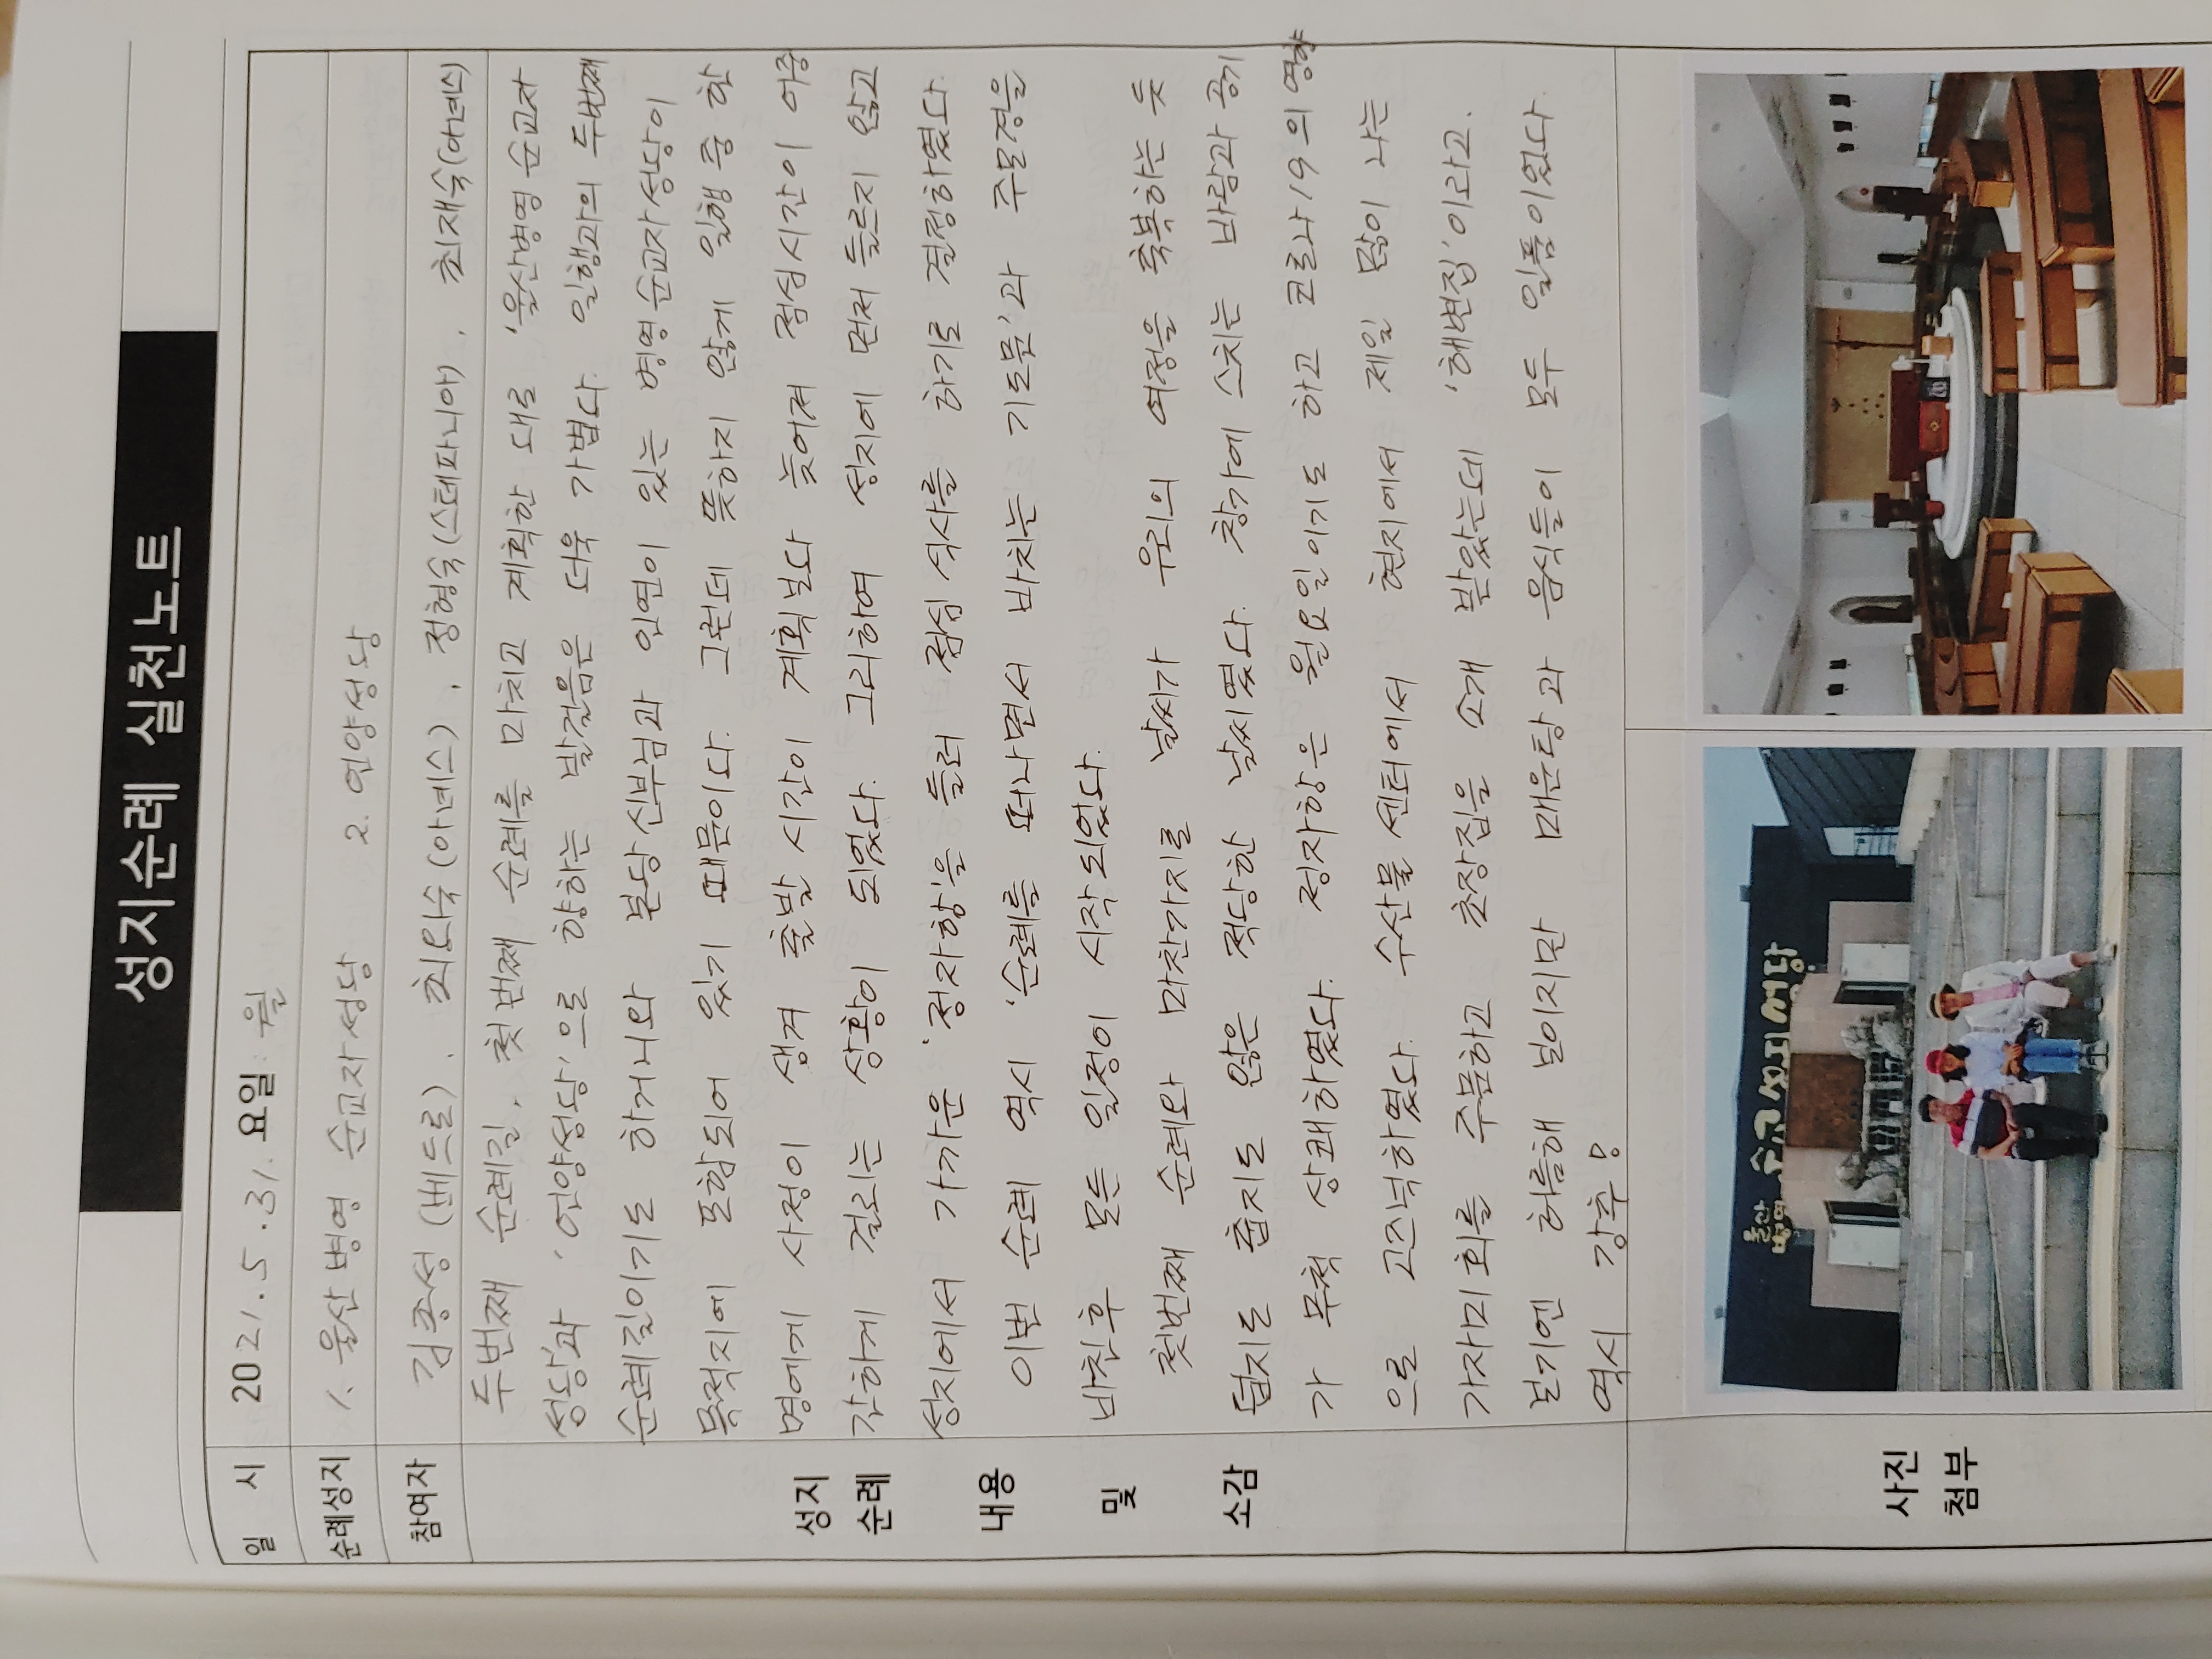 성지순례 실천노트
일 시 2021.5.31. 요일 월
순례성지 1. 울산 병영 순교자성당 2. 언양성당
참여자 김종성(베드로), 최외숙(아녜스), 정형숙(스테파니아), 최재숙(아녜스)
두번째 순례길, 첫번째 순례를 마치고 계획한 대로 '울산병영 순교자
성당'과 '언양성당'으로 향하는 발걸음은 더욱 가볍다. 일행과의 두번째
순례길이기도 하거니와 본당신부님과 인연이 있는 병영순교자성당이
목적지에 포함되어 있기 때문이다. 그런데 뜻하지 않게 일행 중 한
명에게 사정이 생겨 출발 시간이 계획보다 늦어져 점심시간이 어중
간하게 걸리는 상황이 되었다. 그리하여 성지에 먼저 들르지 않고
성지에서 가까운 '정자항'을 들러 점심 식사를 하기로 결정하였다.
이번 순례 역시 '순례를 떠나면서 바치는 기도문'과 주모경을
바친후 모든 일정이 시작되었다.
첫번째 순례와 마찬가지로 날씨가 우리의 여정을 축복하는 듯
덥지도 춥지도 않은 적당한 날씨였다. 창가에 스치는 바람과 공기
가 무척 상쾌하였다. 정자항은 월요일이기도 하고 코로나19의 영향
으로 고즈넉하였다. 수산물 센터에서 현지에서 제일 많이 나는
가자미회를 주문하고 초장집을 소개 받았는데 '해변집'이라고.
보기엔 허름해 보이지만 매운탕과 음식들이 모두 일품이었다.
역시 강추!
성지
순례
내용
및
소감
사진
첨부
울산
병영 순교성지성당